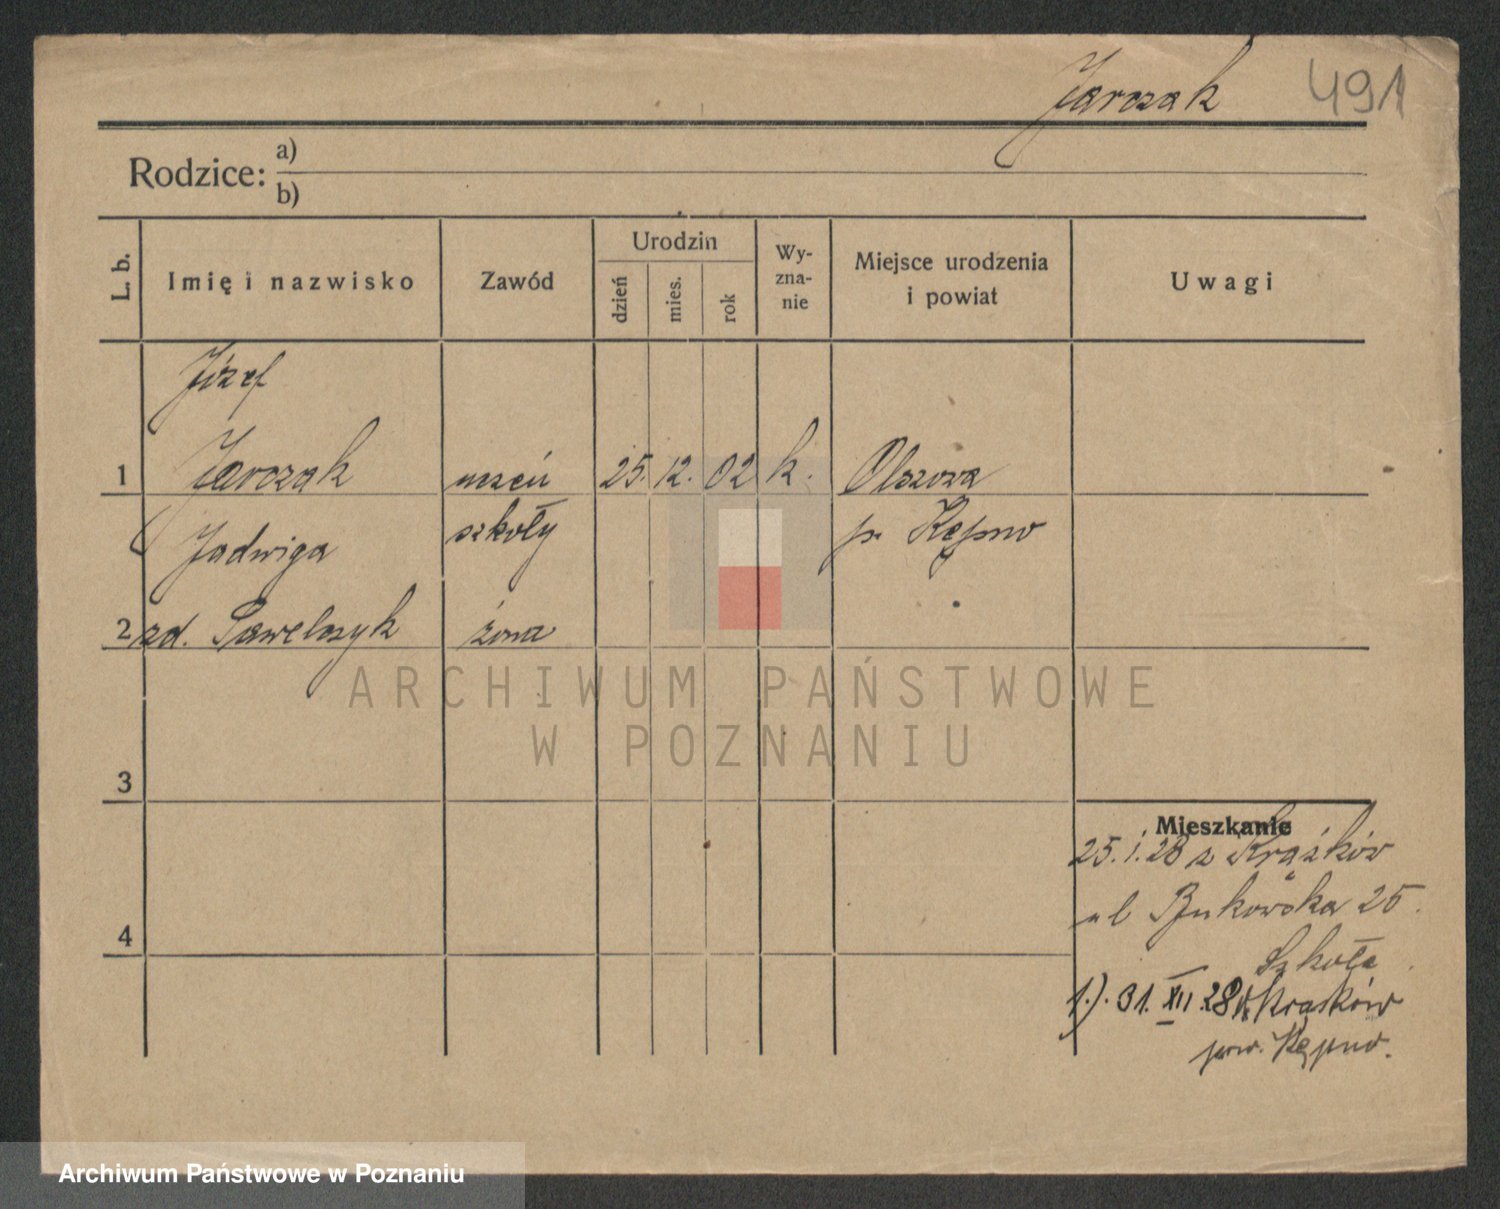 Jarczak 491
Rodzice: a)
b)
L. b. Imię i nazwisko Zawód Urodzin dzień mies. rok Wy-zna-nie Miejsce urodzenia i powiat Uwagi
Józef
1 Jarczak uczeń 25. 12. 02 k. Olszowa
Jadwiga szkoły p. Kępno
2 zd. Pawelczyk żona
3
Mieszkanie
25. 1. 28 z Krążków
ul Bukowska 25.
4
Szkoła
1.). 31. XII. 28 Krążków
pow. Kępno.
ARCHIWUM PAŃSTWOWE
W POZNANIU
Archiwum Państwowe w Poznaniu